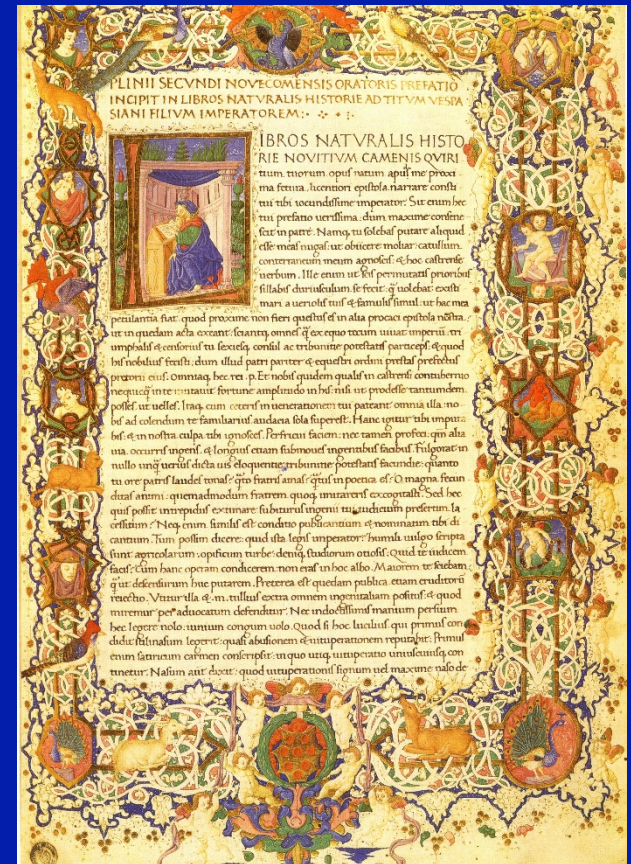 PLINII SECVNDI NOVECOMENSIS ORATORIS PREFATIO
INCIPIT IN LIBROS NATVRALIS HISTORIE AD TITVM VESPA
SIANI FILIVM IMPERATOREM:
LIBROS NATVRALIS HISTO
RIE NOVITIVM CAMENIS QVIRI
tium tuorum opus natum apud me proxi
ma fetura, licentiori epistola narrare consti
tui tibi iocundissime imperator. Sit enim hec
tui prefatio uerissima, dum maxime consene
scit in patre. Namq; tu solebas putare aliquid
esse meas nugas: ut obiicere moliar catullum
conterraneum meum agnoscis. & hoc castrense
uerbum. Ille enim ut scis permutatis prioribus
sillabis duriusculum se fecit: q̃ uolebat existi
mari a uernolis tuis & famulis simul. ut hac mea
petulantia fiat: quod proxime non fieri questus es in alia procaci epistola nostra.
ut in quedam acta exeant. sciantq; omnes q̃ ex equo tecum uiuat imperiũ. tri
umphalis & censorius tu sexiesq; consul ac tribunitie potestatis particeps. & quod
his nobilius fecisti. dum illud patri pariter & equestri ordini prestas prefectus
pretorii eius. Omniaq; hec rei .p. Et nobis quidem qualis in castrensi contubernio
nequicq̃ in te mutauit fortune amplitudo in his: nisi ut prodesse tantumdem
posses ut uelles. Itaq; cum ceteris in uenerationem tui pateant omnia illa: no
bis ad colendum te familiarius audacia sola superest. Hanc igitur tibi imputa
bis: & in nostra culpa tibi ignosces. Perfricui faciem: nec tamen profeci. qm alia
uia occurris ingens. & longius etiam submoues ingentibus facibus. Fulgorat in
nullo unq̃ uerius dicta uis eloquentie: tribunitie potestatis facundie: quanto
tu ore patris laudes tonas: q̃to fratris amas: q̃tus in poetica es? O magna fecun
ditas animi: quemadmodum fratrem quoq; imitareris excogitasti. Sed hec
quis possit intrepidus extimare: subiturus ingenii tui iudicium presertim la
cessitum? Neq; enim similis est conditio publicantium & nominatim tibi di
cantium. Tum possim dicere: quid ista legis imperator? humili uulgo scripta
sunt: agricolarum: opificum turbe: deniq; studiorum otiosis: Quid te iudicem
facis? Cum hanc operam condicerem: non eras in hoc albo. Maiorem te sciebam:
q̃ ut descensurum huc putarem. Preterea est quedam publica etiam eruditorũ
reiectio. Vtitur illa & .m. tullius extra omnem ingenii aliam positus: & quod
miremur per aduocatum defenditur: Nec indoctissimis manium persium
hec legere nolo. iunium congum uolo. Quod si hoc lucilius qui primus con
didit stili nasum legerit: quasi abusionem & uituperationem reputabit: Primus
enim satiricum carmen conscripsit: in quo utiq; uituperatio uniuscuiusq; con
tinetur. Nasum aut dixit: quod uituperationis signum uel maxime naso de